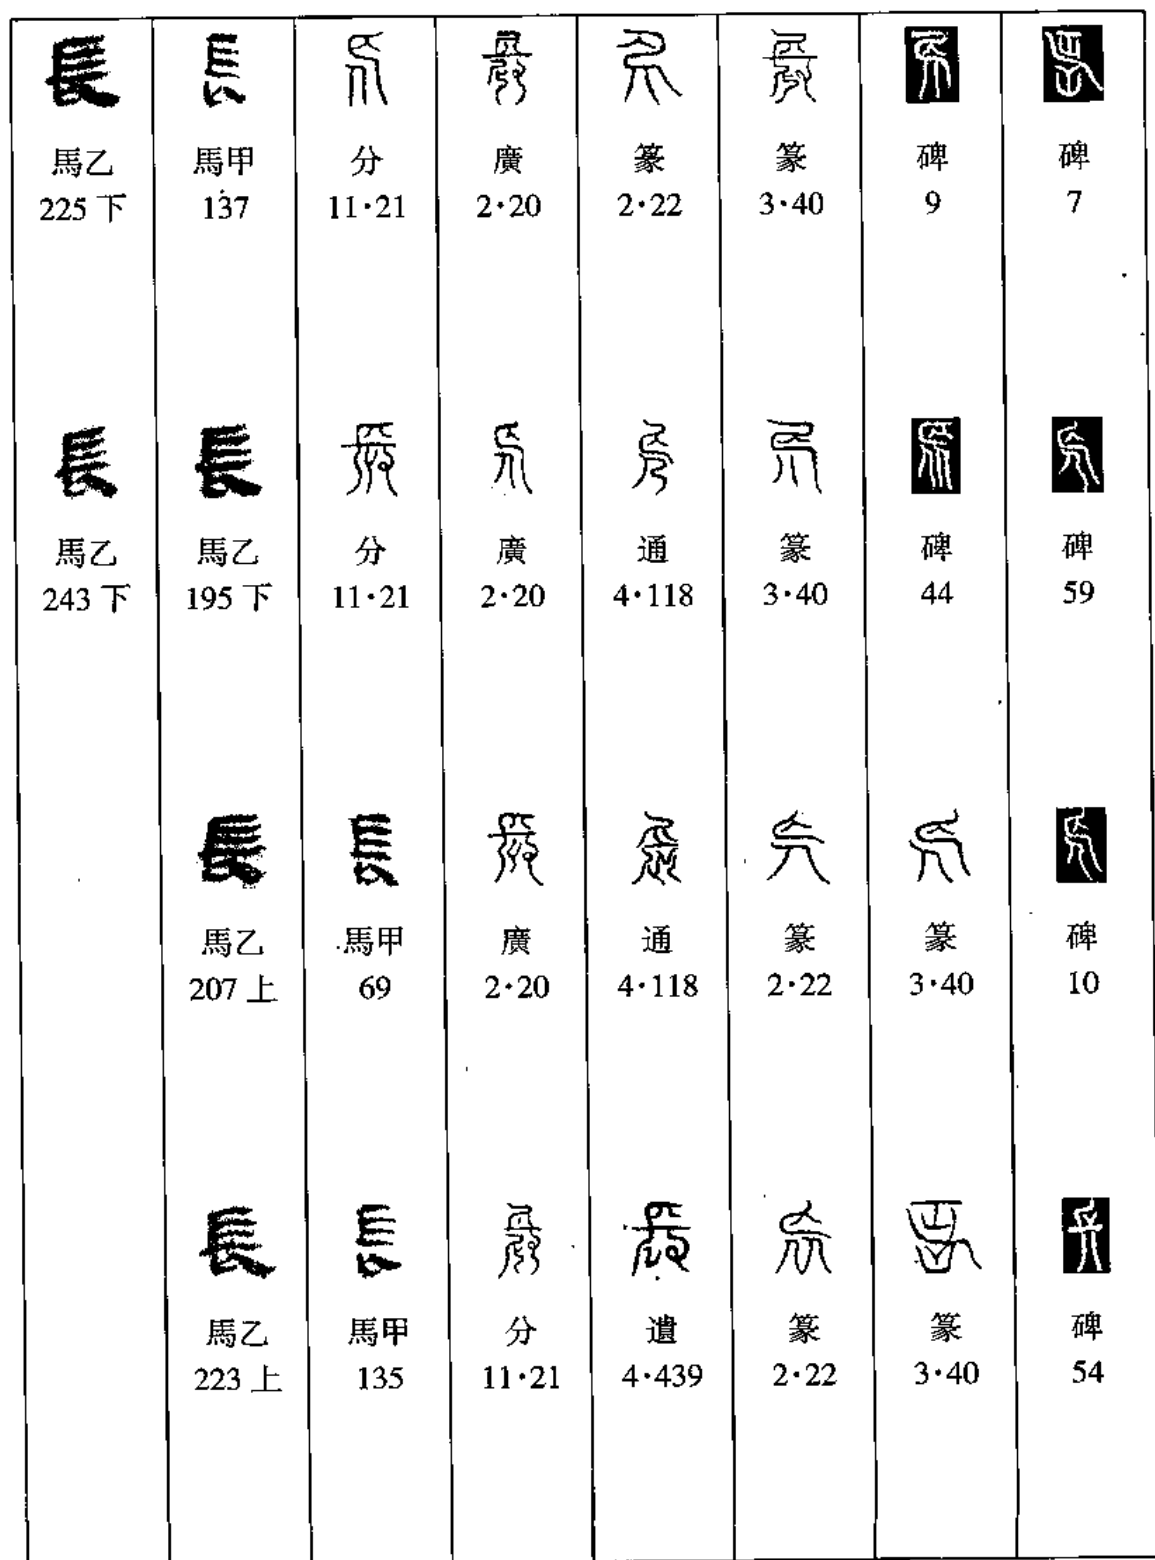 碑
7
碑
59
碑
10
碑
54
碑
9
碑
44
篆
3·40
篆
3·40
篆
3·40
篆
3·40
篆
2·22
篆
2·22
篆
2·22
通
4·118
通
4·118
遺
4·439
廣
2·20
廣
2·20
廣
2·20
分
11·21
分
11·21
分
11·21
長
馬甲
69
長
馬甲
135
長
馬甲
137
長
馬乙
195下
長
馬乙
207上
長
馬乙
223上
長
馬乙
225下
長
馬乙
243下